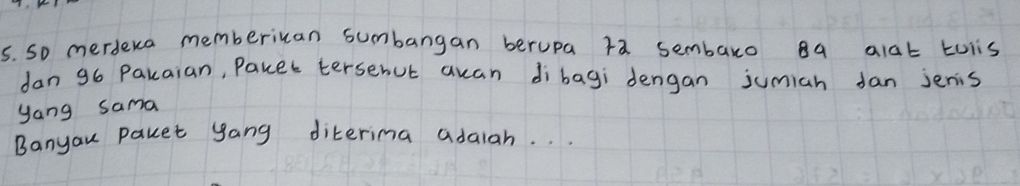 5. SD merdeka memberikan sumbangan berupa 72 sembako 84 alat tulis
dan 96 Pakaian, Paket tersebut akan di bagi dengan jumlah dan jenis
yang sama
Banyak paket yang diterima adalah...